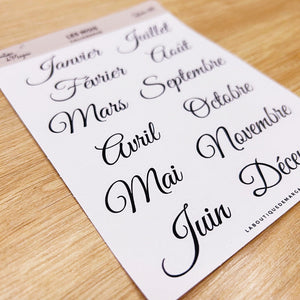 LES MOIS
Janvier
Février
Mars
Avril
Mai
Juin
Juillet
Août
Septembre
Octobre
Novembre
Déce
LABOUTIQUEDEMARC